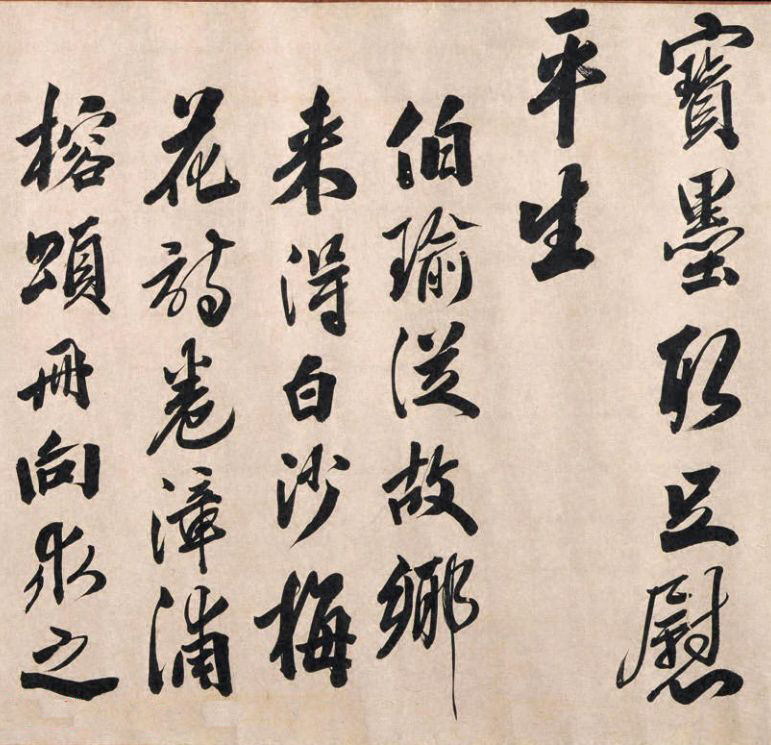 寶墨聊足慰
平生
伯瑜從故鄉
来得白沙梅
花詩卷漳浦
榕頌冊向求之